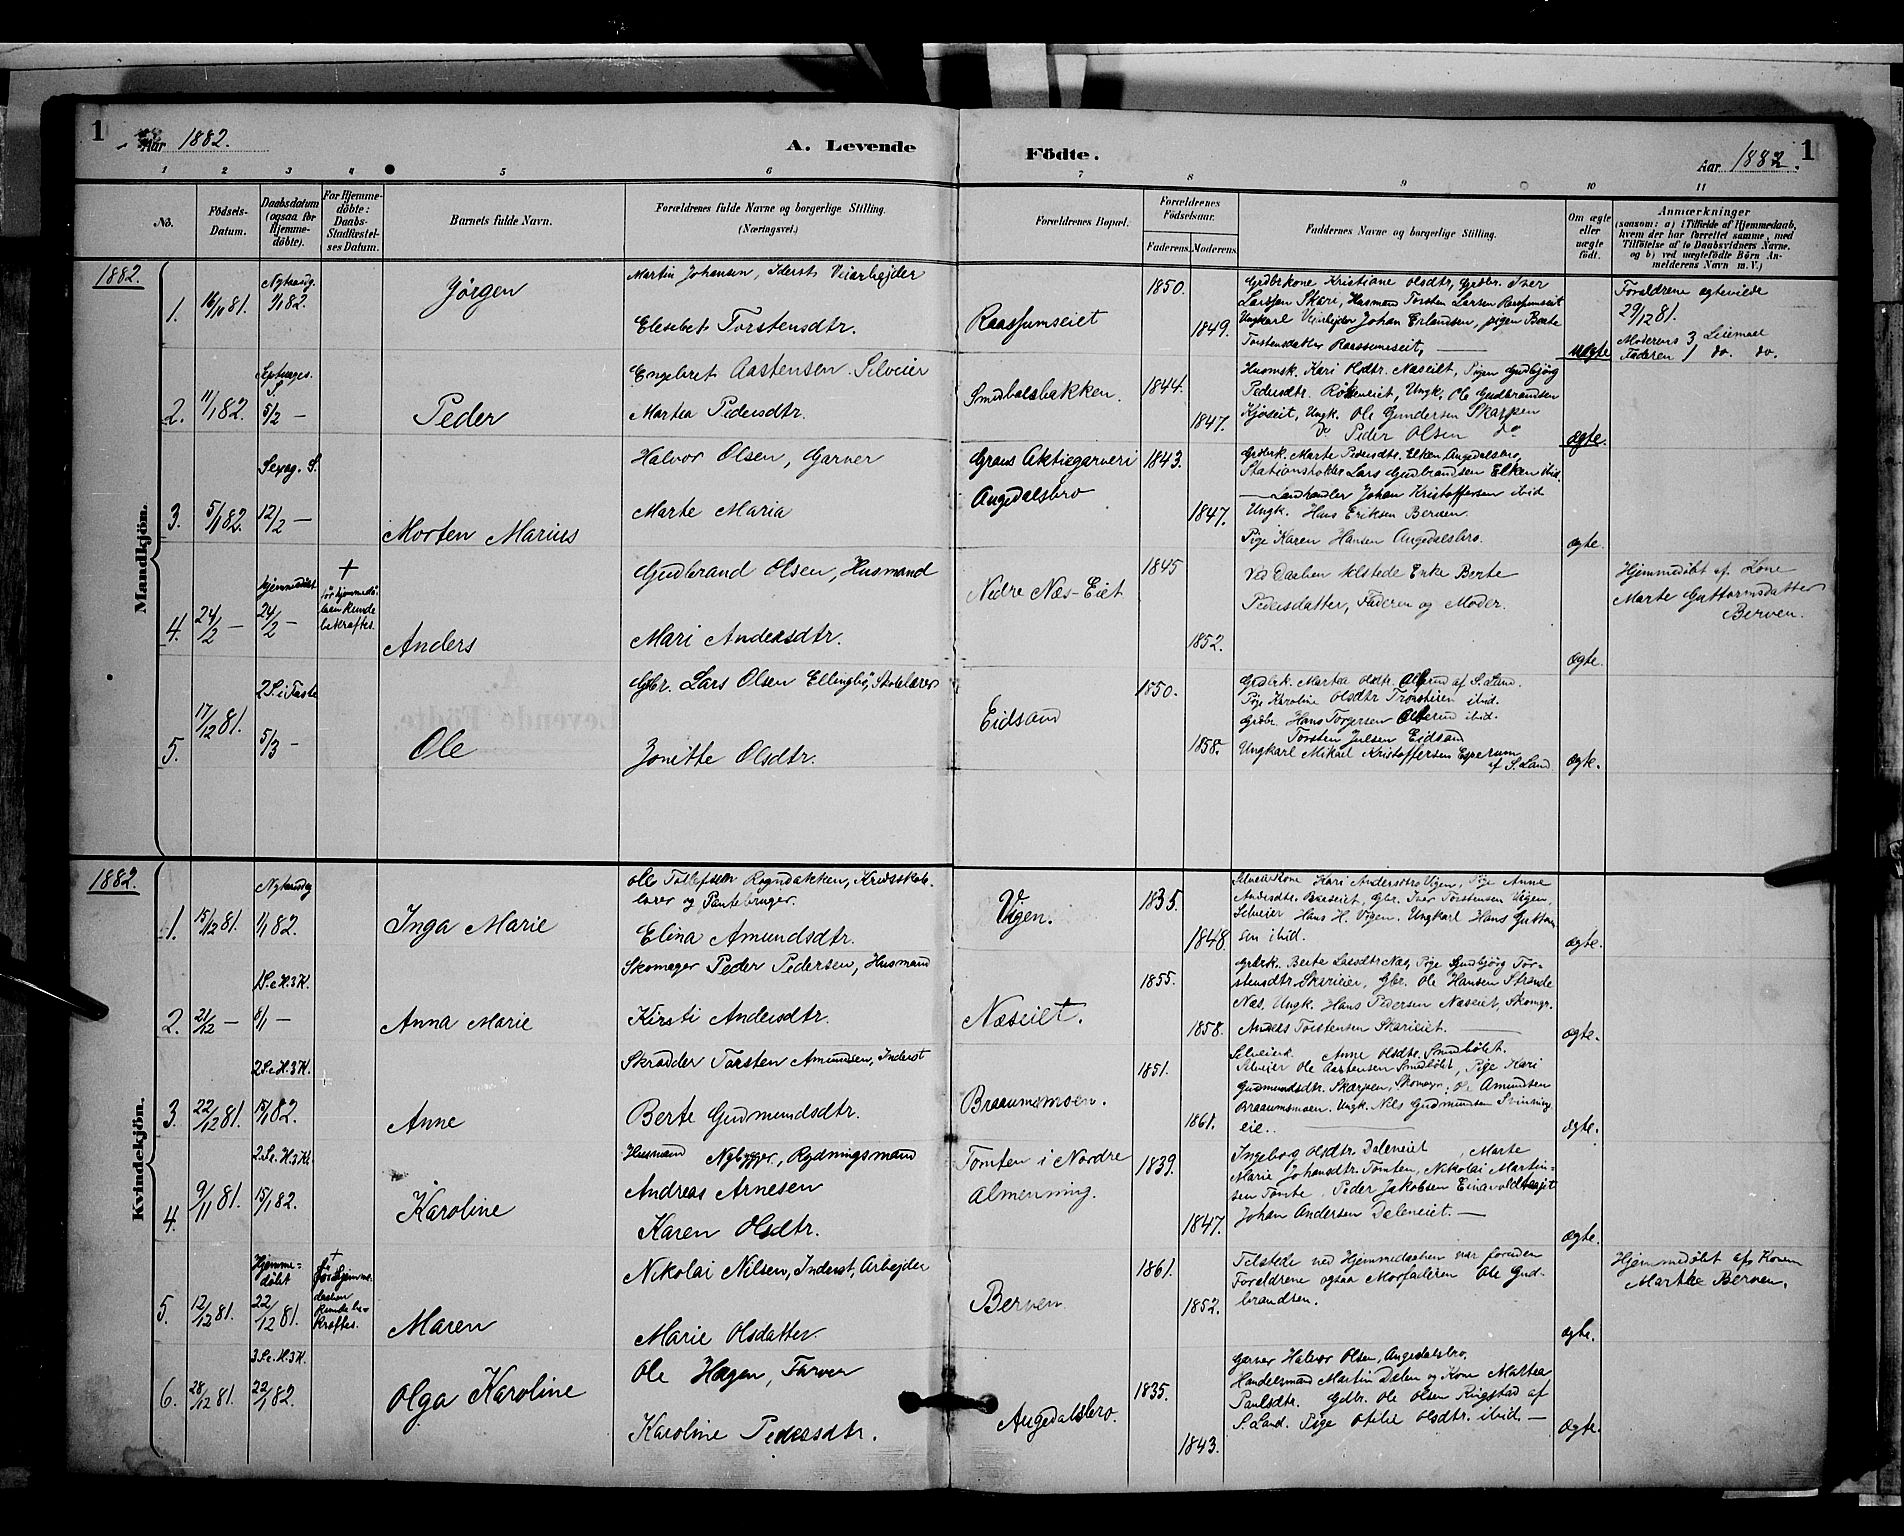 1
Aar 1882.
A. Levende Födte.
Aar 1882.
1
1 2 3 4 5 6 7 8 9 10 11
No.
Födsels-Datum.
Daabsdatum (ogsaa for Hjemme-döbte).
For Hjemme-döbte: Daabs-Stadfæstel-ses Datum.
Barnets fulde Navn.
Forældrenes fulde Navne og borgerlige Stilling. (Næringsvei.)
Forældrenes Bopæl.
Forældrenes Födselsaar.
Faderens. Moderens.
Faddernes Navne og borgerlige Stilling.
Om ægte eller uægte födt.
Anmærkninger
(saasom: a) i Tilfælde af Hjemmedaab,
hvem der har forrettet samme, med
Tilföielse af to Daabsvidners Navne.
og b) ved uægtefödte Börn An-
melderens Navn m. V.)
Mandkjön.
1882.
1. 16/10 81. Nytaarsdg. 1/1 82. Jörgen
Martin Johansen, Iderst Veiarbejder
Elesebet Torstensdtr.
Raassumseiet
1850.
1849.
Grdbrkone Kristiane Olsdtr, Grdbr. Iver
Larssen Skari, Husmand Torsten Larsen Raassumseiet
Ungkarl Veiarbejder Johan Erlandsen, pigen Berte
Torstensdatter Raassumseiet,
uægte
Forældrene ægteviede
29/12 81.
Moderens 3 Leiemaal
Faderen 1 do. do.
2. 11/1 82. Septuages. S. 5/2 — Peder
Engebret Aastensen Selveier
Martea Pedersdtr.
Smedbølsbakken.
1844.
1847.
Husmsk. Kari Olsdtr. Næseiet, Pigen Gudbjörg
Pedersdtr. Rökeneiet, Ungk. Ole Gudbrandsen
Kjöseit, Ungk. Ole Gundersen Skarpen
Do Peder Olsen do
ægte.
3. 5/1 82. Sexag. S. 12/2 — Morten Marius
Halvor Olsen, Garver
Marte Maria
Grans Aktiegarveri
Augedalsbro
1843.
1847.
Grdbrk. Marte Pedersdtr. Elken Augedalsbro,
Stationsholder Lars Gudbrandsen Elken ibid.
— Landhandler Johan Kristoffersen ibid
Ungk. Hans Eriksen Berven.
Pige Karen Hansen Augedalsbro.
ægte.
4. 24/2 — Hjemmedöbt 24/2 — + för hjemmedaaben kunde bekræftes.
Anders
Gudbrand Olsen, Husmand
Mari Andersdtr.
Nedre Næs-Eiet
1845
1852.
Ved Daaben tilstede Enke Berte
Pedersdatter, Faderen og Moder.
ægte.
Hjemmedöbt af Kone
Marte Guttormsdatter
Berven.
5. 17/12 81. 2 S. i Faste 5/3 — Ole
Gbr. Lars Olsen Ellingbö, Skolelærer
Jonette Olsdtr.
Eidsand
1850.
1858.
Grdbrk. Martea Olsdtr. af S. Land.
Pige Karoline Olsdtr ibid.
Grdbr. Hans Torgersen ibid.
Torsten Julsen Eidsand
Ungkarl Mikael Kristoffersen Esperum
af S. Land
ægte.
Kvindekjön.
1882.
1. 15/12 81. Nytaarsdag 1/1 82. Inga Marie
Ole Tollefsen Rogndakken, Kredsskole-
lærer og Pantebruger.
Elina Amundsdtr.
Vigen.
1835.
1848
Selveierkone Kari Andersdtr Vigen, Pige Anne
Andersdtr. Braseiet, Gbr. Iver Torstensen Vigen,
Selveier Hans H. Vigen. Ungkarl Hans Guttorm
sen ibid.
ægte.
2. 21/12 — 1 S. e. H. 3 K. 8/1 — Anna Marie
Skomager Peder Pedersen, Husmand
Kirsti Andersdtr.
Næseiet.
1855.
1858.
Grdbrk. Berte Larsdtr Næs, Pige Gudbjörg Tor-
stensdtr. Skarieier, Gbr. Ole Hansen Strande
Næs, Ungk. Hans Pedersen Næseiet, Skomgr.
Anders Torstensen Skarieiet.
ægte.
3. 22/12 81. 2 S. e. H. 3 K. 15/1 82. Anne
Skrædder Torsten Amundsen, Inderst
Berte Gudmundsdtr.
Braaumsmoen.
1851.
1861.
Selveierk. Anne Olsdtr. Smedbölet.
Selveier Ole Aastensen Smedbölet, Pige Kari
Gudmundsdtr. Skarpen, Skomgr. Ole Amundsen
Braaumsmoen. Ungk. Nils Gudmundsen Svinning
eie.
ægte.
4. 9/11 81. 2. S. e. H. 3 K. 15/1 82. Karoline
Husmand Nybygger, Rydningsmand
Andreas Arnesen
Karen Olsdtr.
Tomten i Nordre
Almenning.
1839.
1847.
Ingeborg Olsdtr. Daleneiet, Marte
Marie Johansdtr. Tomten, Nikolai Martin-
sen Tomte. Peder Jakobsen
Johan Andersen Daleneiet. —
ægte.
5. 12/12 81. Hjemme-döbt 22/12 81. + för Hjemme-daaben kunde be-kræftes.
Maren
Nikolai Nilsen, Inderst, Arbejder
Marie Olsdatter.
Berven.
1861.
1852.
Tilstede ved Hjemmedaaben var foruden
Forældrene ogsaa Morfaderen Ole Gud-
brandsen.
ægte.
Hjemmedöbt af Konen
Marthe Berven.
6. 28/12 81. 3 S. e. H. 3 K. 22/1 82. Olga Karoline
Ole Hagen, Farver
Karoline Pedersdtr.
Augedalsbro.
1835.
1843.
Garver Halvor Olsen, Augedalsbro.
Handelsmand Martin Dalen og Kone Maltea
Paulsdtr. Gdbr. Ole Olsen Ringstad af
S. Land. Pige Otilie Olsdtr. ibid. —
ægte.